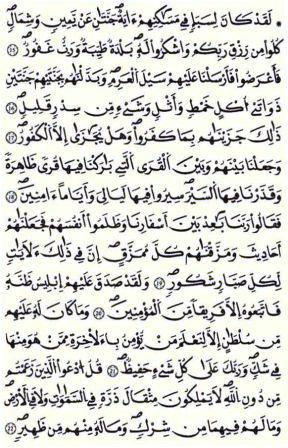 لَقَدْ كَانَ لِسَبَإٍ فِي مَسْكَنِهِمْ ءَايَةٌ جَنَّتَانِ عَن يَمِينٍ وَشِمَالٍ
كُلُوا۟ مِن رِّزْقِ رَبِّكُمْ وَٱشْكُرُوا۟ لَهُۥ بَلْدَةٌ طَيِّبَةٌ وَرَبٌّ غَفُورٌ ١٥
فَأَعْرَضُوا۟ فَأَرْسَلْنَا عَلَيْهِمْ سَيْلَ ٱلْعَرِمِ وَبَدَّلْنَٰهُم بِجَنَّتَيْهِمْ جَنَّتَيْنِ
ذَوَاتَىْ أُكُلٍ خَمْطٍ وَأَثْلٍ وَشَىْءٍ مِّن سِدْرٍ قَلِيلٍ ١٦
ذَٰلِكَ جَزَيْنَٰهُم بِمَا كَفَرُوا۟ وَهَلْ يُجَٰزَىٰٓ إِلَّا ٱلْكَفُورُ ١٧
وَجَعَلْنَا بَيْنَهُمْ وَبَيْنَ ٱلْقُرَى ٱلَّتِى بَٰرَكْنَا فِيهَا قُرًى ظَٰهِرَةً
وَقَدَّرْنَا فِيهَا ٱلسَّيْرَ سِيرُوا۟ فِيهَا لَيَالِىَ وَأَيَّامًا ءَامِنِينَ ١٨
فَقَالُوا۟ رَبَّنَا بَٰعِدْ بَيْنَ أَسْفَارِنَا وَظَلَمُوٓا۟ أَنفُسَهُمْ فَجَعَلْنَٰهُمْ
أَحَادِيثَ وَمَزَّقْنَٰهُمْ كُلَّ مُمَزَّقٍ إِنَّ فِى ذَٰلِكَ لَءَايَٰتٍ
لِّكُلِّ صَبَّارٍ شَكُورٍ ١٩ وَلَقَدْ صَدَّقَ عَلَيْهِمْ إِبْلِيسُ ظَنَّهُۥ
فَٱتَّبَعُوهُ إِلَّا فَرِيقًا مِّنَ ٱلْمُؤْمِنِينَ ٢٠ وَمَا كَانَ لَهُۥ عَلَيْهِم
مِّن سُلْطَٰنٍ إِلَّا لِنَعْلَمَ مَن يُؤْمِنُ بِٱلْءَاخِرَةِ مِمَّنْ هُوَ مِنْهَا
فِى شَكٍّ وَرَبُّكَ عَلَىٰ كُلِّ شَىْءٍ حَفِيظٌ ٢١ قُلِ ٱدْعُوا۟ ٱلَّذِينَ زَعَمْتُم
مِّن دُونِ ٱللَّهِ لَا يَمْلِكُونَ مِثْقَالَ ذَرَّةٍ فِى ٱلسَّمَٰوَٰتِ وَلَا فِى ٱلْأَرْضِ
وَمَا لَهُمْ فِيهِمَا مِن شِرْكٍ وَمَا لَهُۥ مِنْهُم مِّن ظَهِيرٍ ٢٢